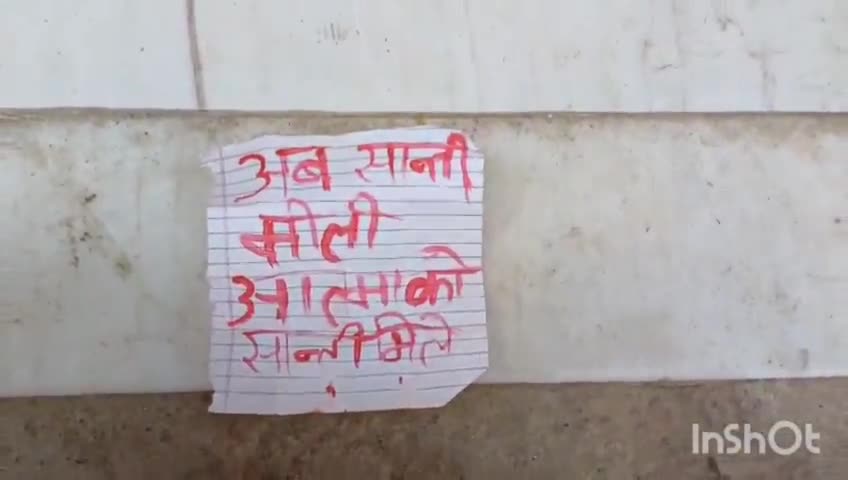 अब सान्ती
मीली
आत्मा को
सान्ती मिले
InShOt